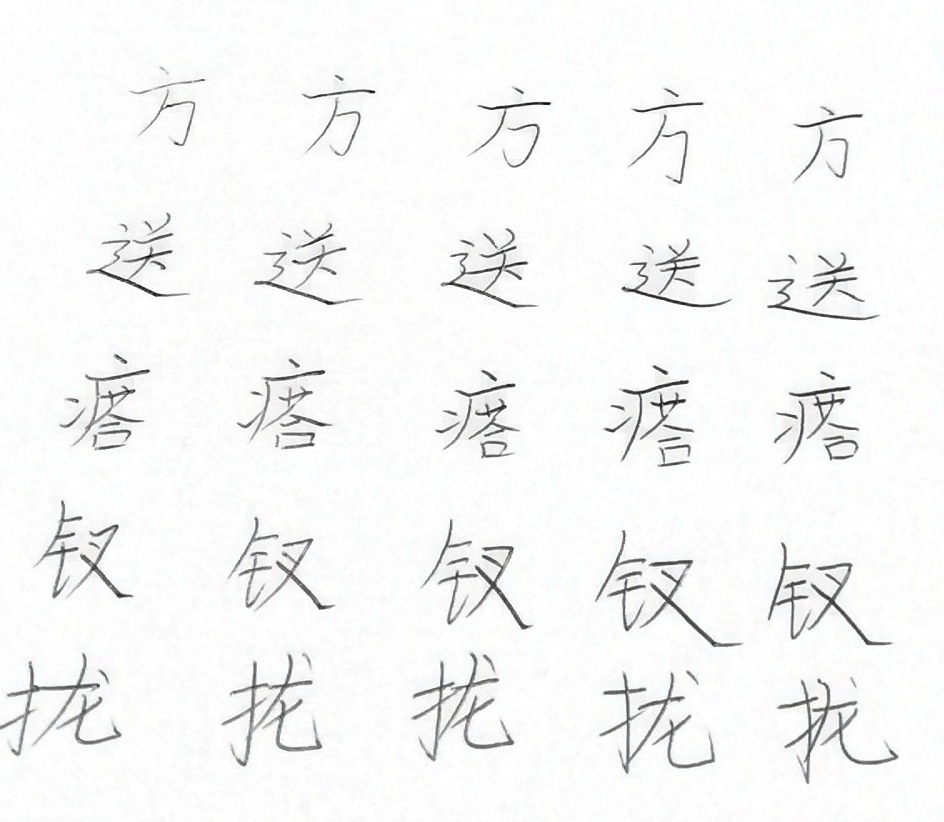 方 方 方 方 方
送 送 送 送 送
瘩 瘩 瘩 瘩 瘩
钗 钗 钗 钗 钗
拢 拢 拢 拢 拢